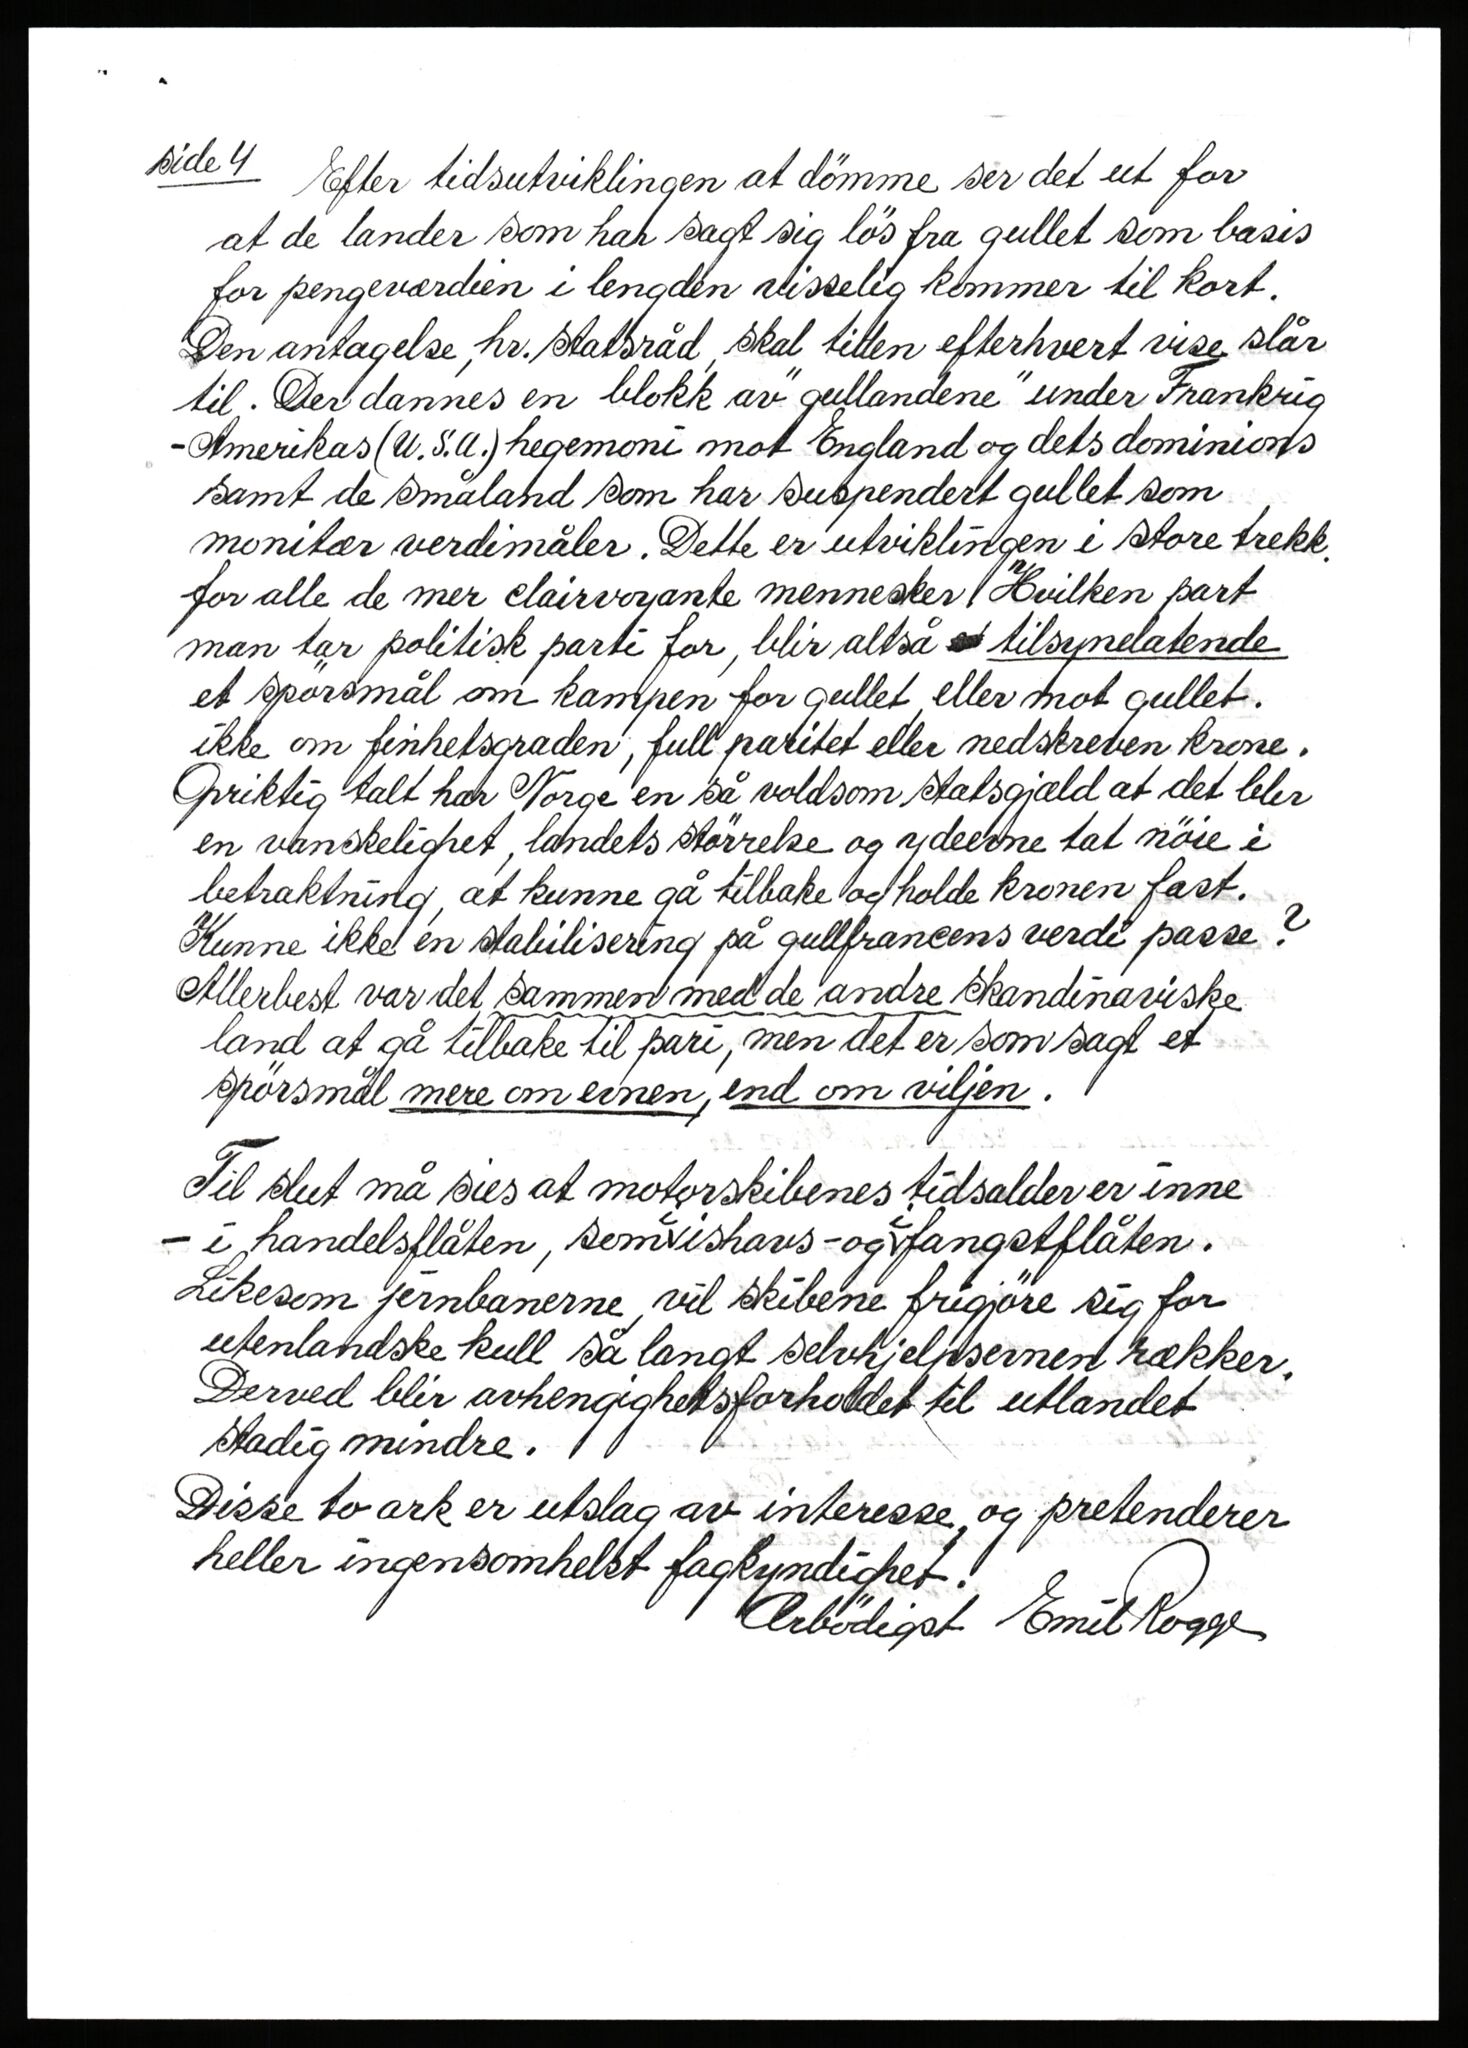 side 4 Efter tidsutviklingen at dömme ser det ut for
at de lander som har sagt sig lös fra gullet som basis
for pengeværdien i lengden visselig kommer til kort.
Den antagelse, hr. statsråd, skal tiden efterhvert vise slår
til. Der dannes en blokk av "gullandene" under Frankrig
-Amerikas (U.S.A.) hegemoni mot England og dets dominions
samt de småland som har suspendert gullet som
monitær verdimåler. Dette er utviklingen i store trekk
for alle de mer clairvoyante mennesker. Hvilken part
man tar politisk parti for, blir altså tilsynelatende
et spörsmål om kampen for gullet, eller mot gullet.
ikke om finhetsgraden, full paritet eller nedskreven krone.
Opriktig talt har Norge en så voldsom statsgjæld at det blir
en vanskelighet, landets störrelse og ydeevne tat nöie i
betraktning, at kunne gå tilbake og holde kronen fast.
Kunne ikke en stabilisering på gullfrancens verdi passe?
Allerbest var det, sammen med de andre skandinaviske
land at gå tilbake til pari, men det er som sagt et
spörsmål mere om evnen, end om viljen.
Til slut må sies at motorskibenes tidsalder er inne
- i handelsflåten, som i ishavs- og i fangstflåten.
Likesom jernbanerne, vil skibene frigjöre sig for
utenlandske kull så langt selvhjelpsevnen rækker.
Derved blir avhengighetsforholdet til utlandet
stadig mindre.
Disse to ark er utslag av interesse, og pretenderer
heller ingensomhelst fagkyndighet.
Ærbödigst Emil Rogge